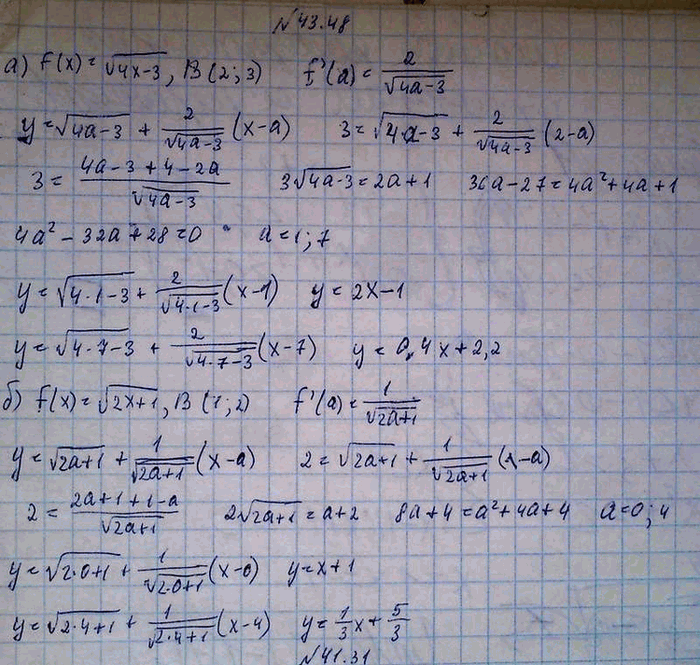 №43.48
а) f(x) = √(4x-3), B(2; 3) f'(a) = 2/√(4a-3)
y = √(4a-3) + 2/√(4a-3) (x-a) 3 = √(4a-3) + 2/√(4a-3) (2-a)
3 = (4a-3+4-2a)/√(4a-3) 3√(4a-3) = 2a+1 36a-27 = 4a²+4a+1
4a² - 32a + 28 = 0 a = 1; 7
y = √(4·1-3) + 2/√(4·1-3) (x-1) y = 2x-1
y = √(4·7-3) + 2/√(4·7-3) (x-7) y = 0,4x+2,2
б) f(x) = √(2x+1), B(1; 2) f'(a) = 1/√(2a+1)
y = √(2a+1) + 1/√(2a+1) (x-a) 2 = √(2a+1) + 1/√(2a+1) (1-a)
2 = (2a+1+1-a)/√(2a+1) 2√(2a+1) = a+2 8a+4 = a²+4a+4 a = 0; 4
y = √(2·0+1) + 1/√(2·0+1) (x-0) y = x+1
y = √(2·4+1) + 1/√(2·4+1) (x-4) y = 1/3 x + 5/3
№41.31